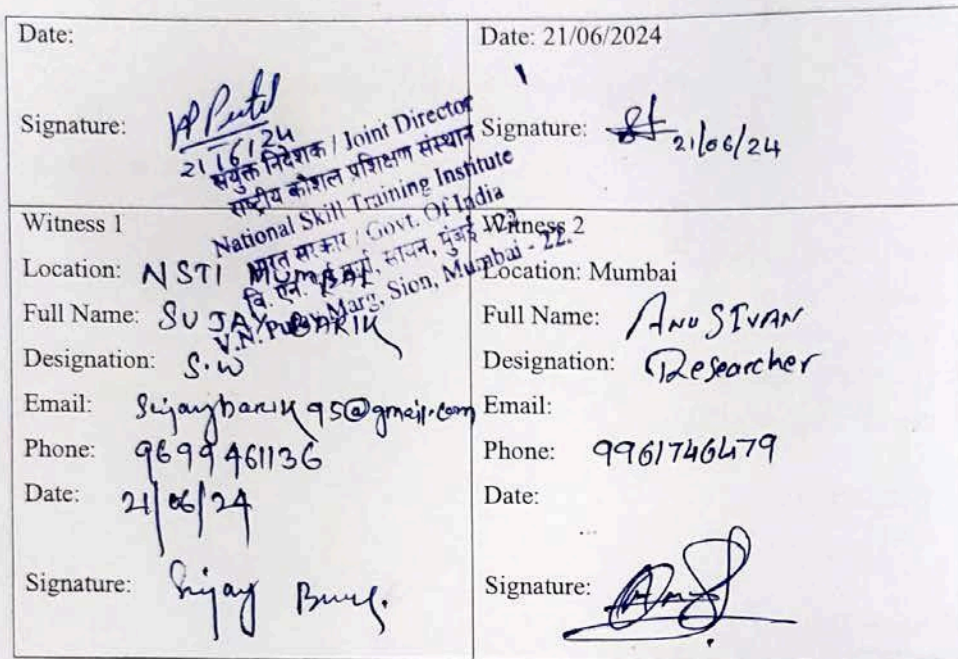 Date:
Signature:
21/6/24
संयुक्त निदेशक / Joint Director
राष्ट्रीय कौशल प्रशिक्षण संस्थान
National Skill Training Institute
भारत सरकार / Govt. Of India
वि. एन. मार्ग, सायन, मुंबई - 22.
V.N. Purav Marg, Sion, Mumbai - 22.
Date: 21/06/2024
Signature: 21/06/24
Witness 1
Location: NSTI Mumbai
Full Name: SUJAY BARIK
Designation: S.W
Email: Sujaybarik95@gmail.com
Phone: 9699461136
Date: 21/06/24
Signature: Sujay
Witness 2
Location: Mumbai
Full Name: ANU SIVAN
Designation: Researcher
Email:
Phone: 9961746479
Date:
Signature: